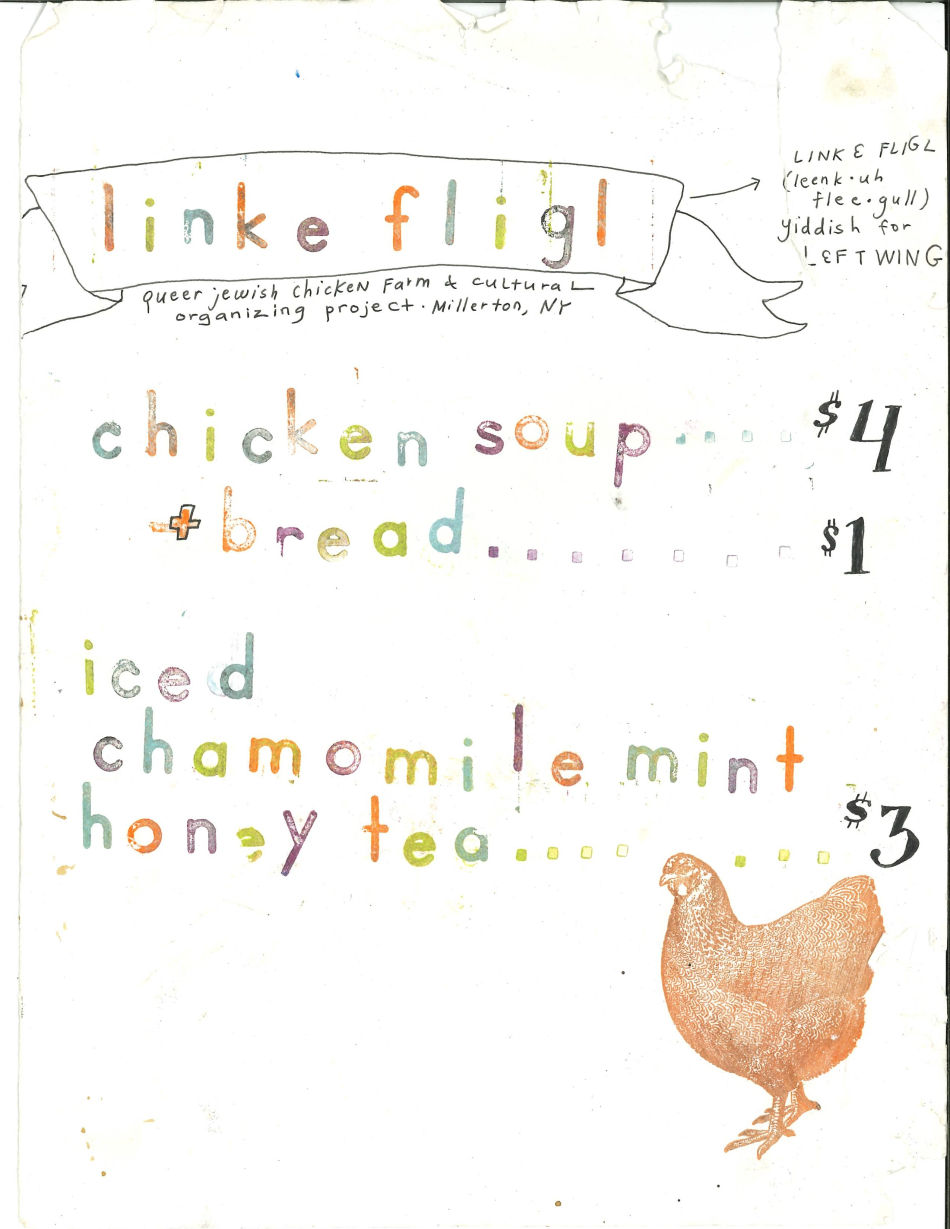 linke fligl
LINKE FLIGL
(leenk·uh
flee·gull)
yiddish for
LEFT WING
queer jewish chicken farm & cultural
organizing project · Millerton, NY
chicken soup .... $4
+ bread ....... $1
iced
chamomile mint
honey tea .... ... $3